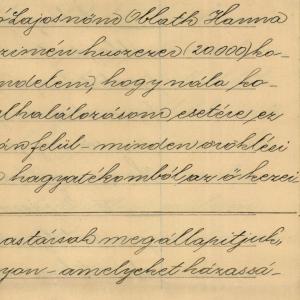 Lajosnöm Oblath Hanna
címén huszezer (20.000) ko-
ndelem, hogy nála ko-
elhalálozásom esetére, ez
ánfelül - minden öröklési
hagyatékomból, az ő kezei
astársak megállapitjuk,
yon - amelyeket házassá-